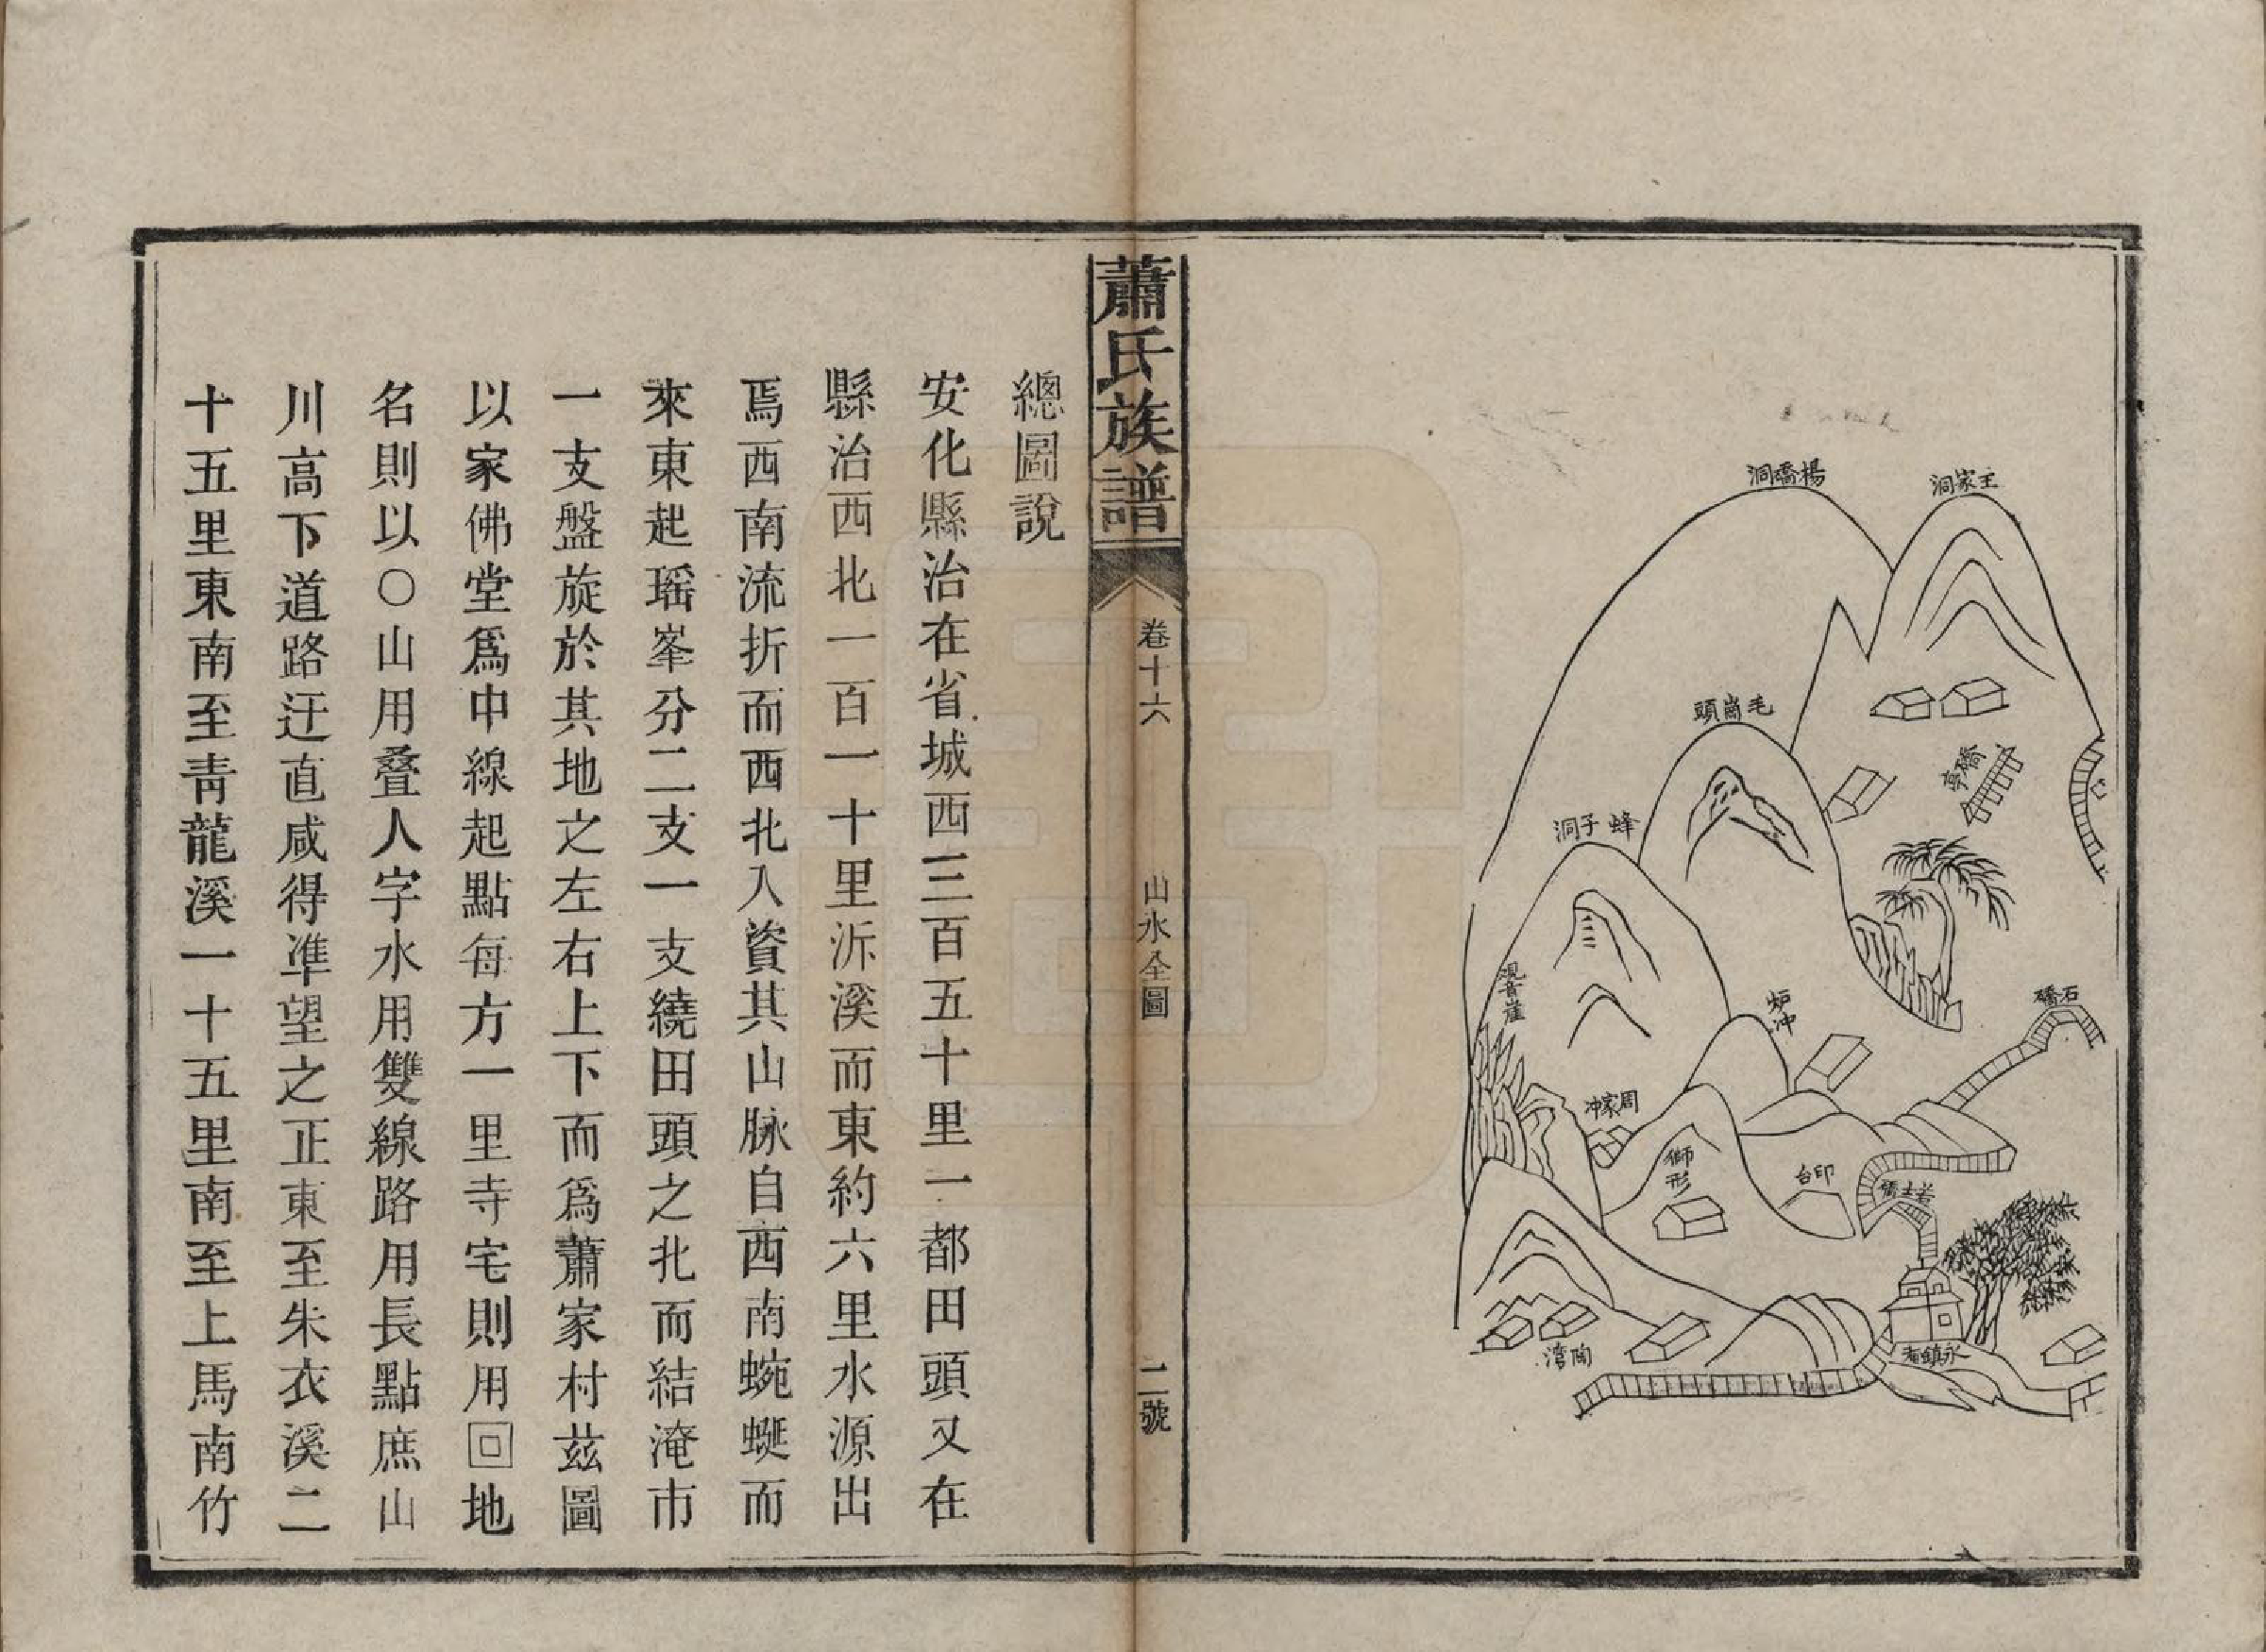 王家洞
楊橋洞
毛崗頭
橋亭
蜂子洞
觀音崖
炉冲
石橋
周家冲
獅形
印台
永鎮菴
陶湾
蕭氏族譜
卷十六
山水全圖
二號
總圖說
安化縣治在省城西三百五十里一都田頭又在
縣治西北一百一十里泝溪而東約六里水源出
焉西南流折而西北入資其山脉自西南蜿蜒而
來東起瑶峯分二支一支繞田頭之北而結淹市
一支盤旋於其地之左右上下而爲蕭家村茲圖
以家佛堂爲中線起點每方一里寺宅則用回地
名則以○山用叠人字水用雙線路用長點庶山
川高下道路迂直咸得準望之正東至朱衣溪二
十五里東南至靑龍溪一十五里南至上馬南竹